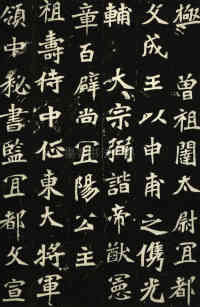 極 曾祖闥太尉冝都
文成王以申甫之儁光
輔 大宗弼諧帝猷憲
章百辟尚冝陽公主
祖壽侍中征東大將軍
領中秘書監冝都文宣